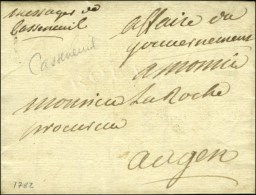 messages de
Casseneuil
Casseneuil
affaire du
gouvernement
a monsieur
monsieur La Roche
procureur
a agen
1762